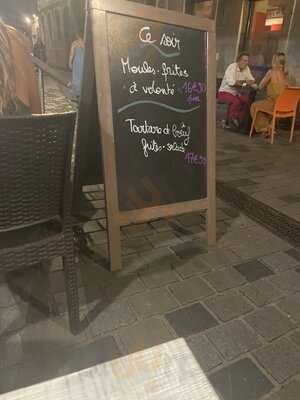 Ce soir
Moules. frites
à volonté 16€50
Tartare de bœuf
frites. salade
17€50